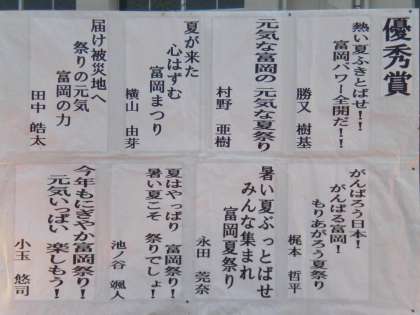 優秀賞
熱い夏ふきとばせ!!
富岡パワー全開だ!!
勝又 樹基
元気な富岡の 元気な夏祭り
村野 亜樹
夏が来た
心はずむ
富岡まつり
横山 由芽
届け被災地へ
祭りの元気
富岡の力
田中 皓太
がんばろう日本!
がんばる富岡!
もりあがろう夏祭り
梶本 哲平
暑い夏ぶっとばせ
みんな集まれ
富岡夏祭り
永田 莞奈
夏はやっぱり 富岡祭り!
暑い夏こそ 祭りでしょ!
池ノ谷 颯人
今年もにぎやか富岡祭り!
元気いっぱい 楽しもう!
小玉 悠司